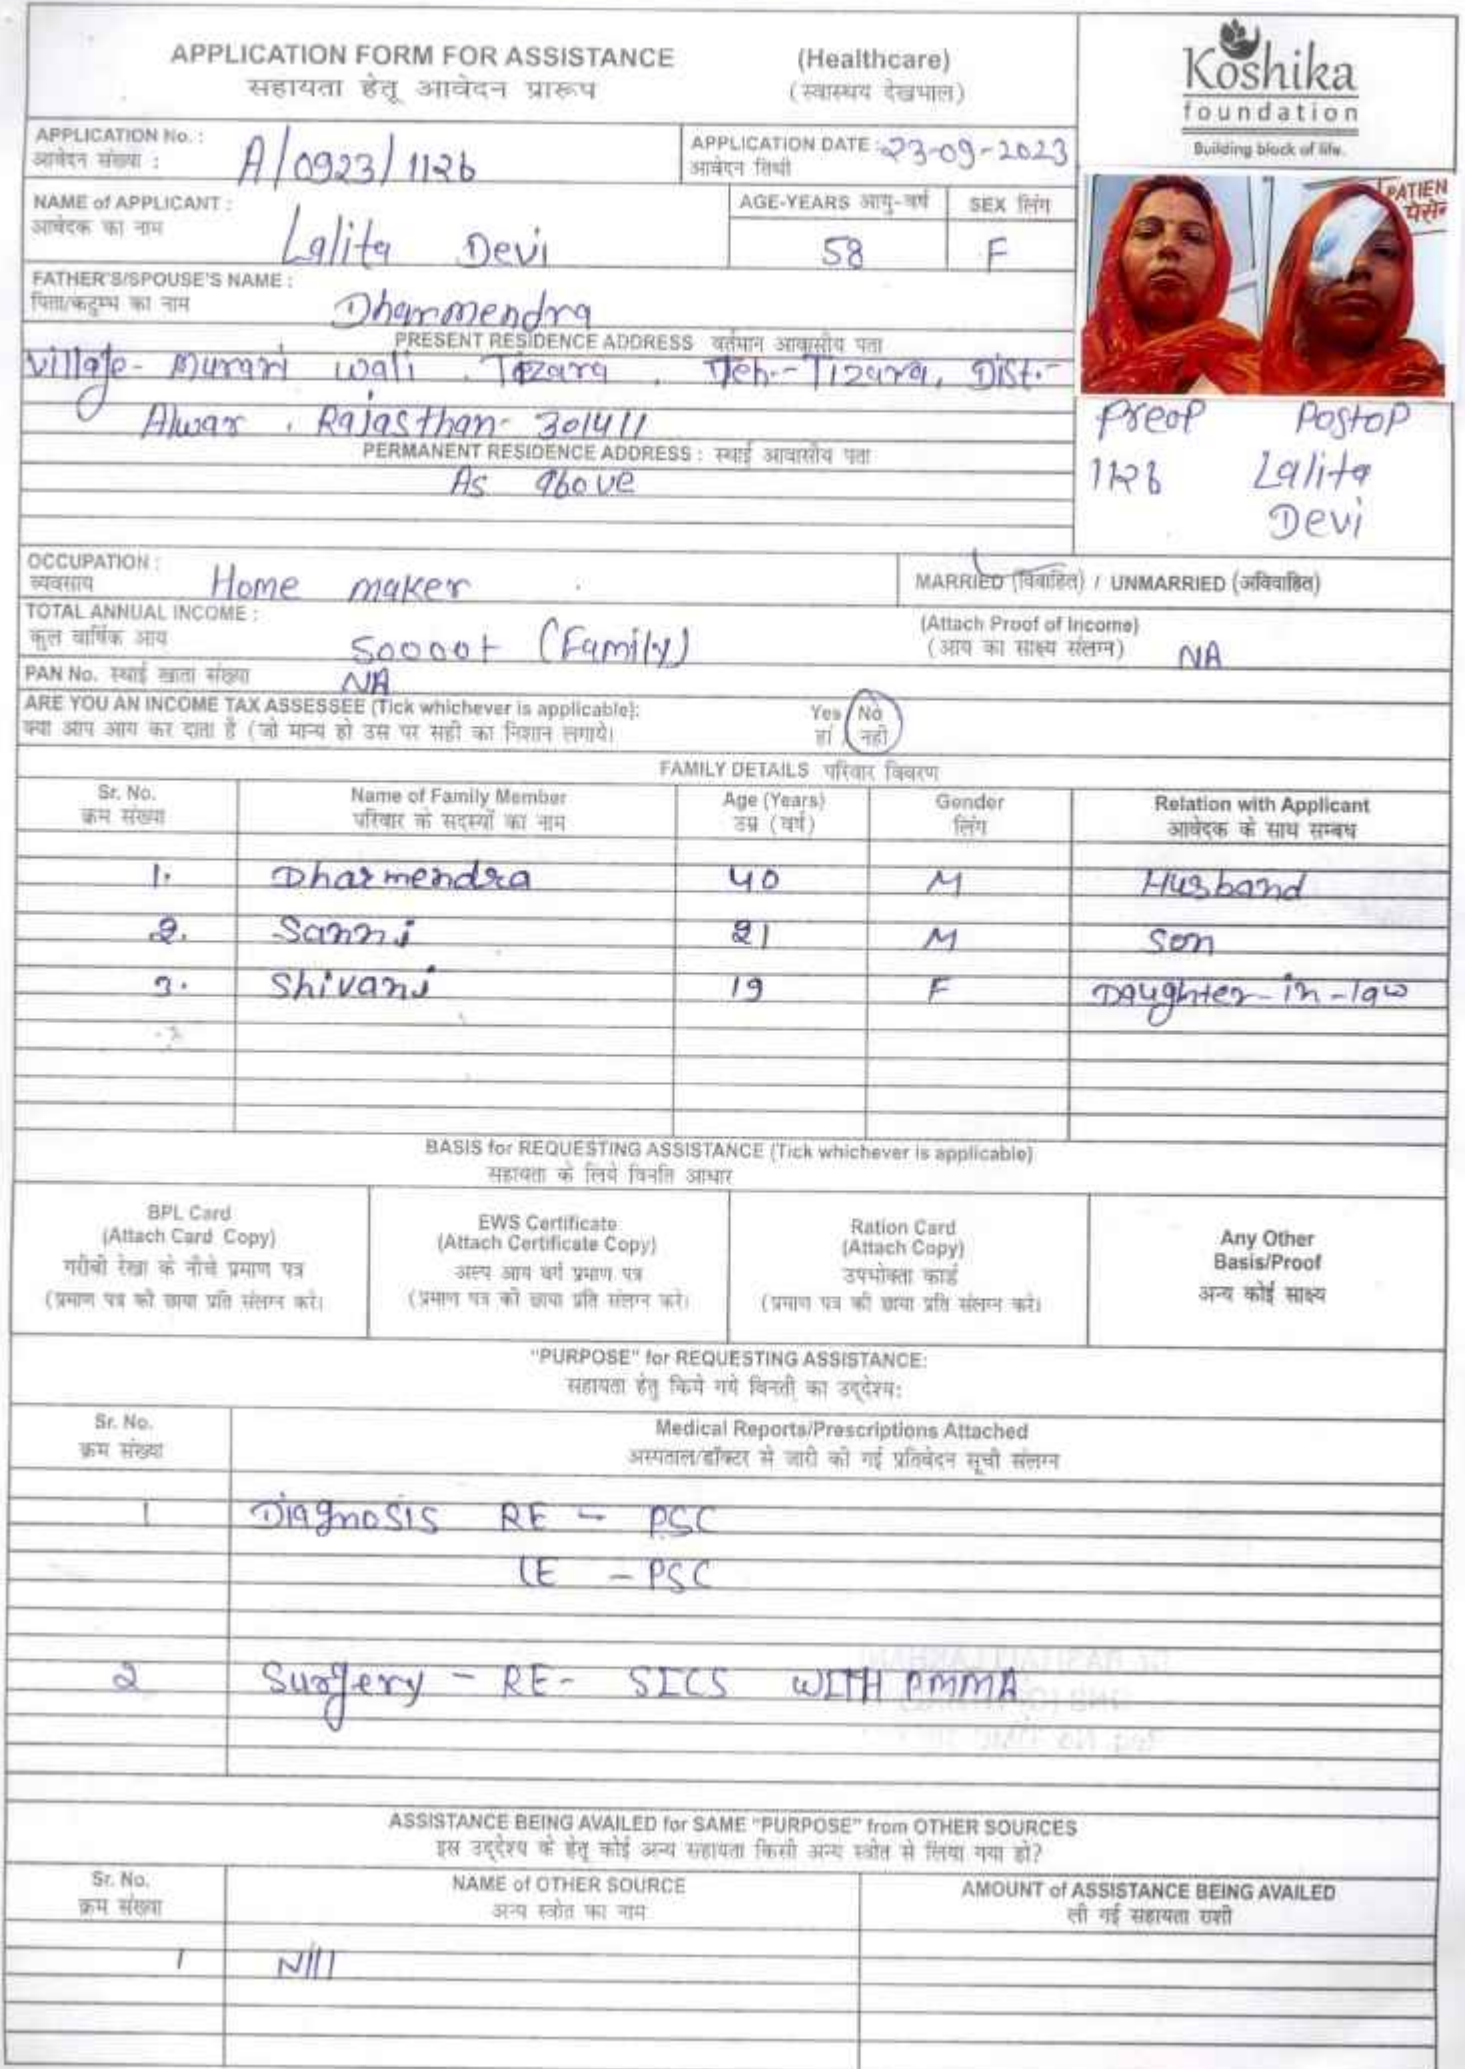 APPLICATION FORM FOR ASSISTANCE (Healthcare)
सहायता हेतू आवेदन प्रारूप (स्वास्थय देखभाल)
Koshika
foundation
Building block of life.
APPLICATION No. : A/0923/1126
आवेदन संख्या :
APPLICATION DATE : 23-09-2023
आवेदन तिथी
NAME of APPLICANT : Lalita Devi
आवेदक का नाम
AGE-YEARS आयु-वर्ष 58
SEX लिंग F
PATIEN
FATHER'S/SPOUSE'S NAME : Dharmendra
पिता/कटुम्भ का नाम
PRESENT RESIDENCE ADDRESS वर्तमान आवासीय पता
Village- Murari wali Tizara, Teh.- Tizara, Dist.-
Alwar, Rajasthan- 301411
PERMANENT RESIDENCE ADDRESS : स्थाई आवासीय पता
As above
Preop Postop
1126 Lalita
Devi
OCCUPATION : Home maker
व्यवसाय
MARRIED (विवाहित) / UNMARRIED (अविवाहित)
TOTAL ANNUAL INCOME : 50000+ (Family)
कुल वार्षिक आय
(Attach Proof of Income)
(आय का साक्ष्य संलग्न) NA
PAN No. स्थाई खाता संख्या NA
ARE YOU AN INCOME TAX ASSESSEE (Tick whichever is applicable): Yes / No
क्या आप आय कर दाता है (जो मान्य हो उस पर सही का निशान लगाये। हां / नही
FAMILY DETAILS परिवार विवरण
Sr. No. Name of Family Member Age (Years) Gender Relation with Applicant
क्रम संख्या परिवार के सदस्यों का नाम उम्र (वर्ष) लिंग आवेदक के साथ सम्बध
1. Dharmendra 40 M Husband
2. Sanni 21 M Son
3. Shivani 19 F Daughter-in-law
BASIS for REQUESTING ASSISTANCE (Tick whichever is applicable)
सहायता के लिये विनति आधार
BPL Card
(Attach Card Copy)
गरीबी रेखा के नीचे प्रमाण पत्र
(प्रमाण पत्र की छाया प्रति संलग्न करे।
EWS Certificate
(Attach Certificate Copy)
अल्प आय वर्ग प्रमाण पत्र
(प्रमाण पत्र की छाया प्रति संलग्न करे।
Ration Card
(Attach Copy)
उपभोक्ता कार्ड
(प्रमाण पत्र की छाया प्रति संलग्न करे।
Any Other
Basis/Proof
अन्य कोई साक्ष्य
"PURPOSE" for REQUESTING ASSISTANCE:
सहायता हेतु किये गये विनती का उद्देश्य:
Sr. No. Medical Reports/Prescriptions Attached
क्रम संख्या अस्पताल/डॉक्टर से जारी की गई प्रतिवेदन सूची संलग्न
1 Diagnosis RE - PSC
LE - PSC
2 Surgery - RE- SICS WITH PMMA
ASSISTANCE BEING AVAILED for SAME "PURPOSE" from OTHER SOURCES
इस उद्देश्य के हेतू कोई अन्य सहायता किसी अन्य स्त्रोत से लिया गया हो?
Sr. No. NAME of OTHER SOURCE AMOUNT of ASSISTANCE BEING AVAILED
क्रम संख्या अन्य स्त्रोत का नाम ली गई सहायता राशी
1 Nill